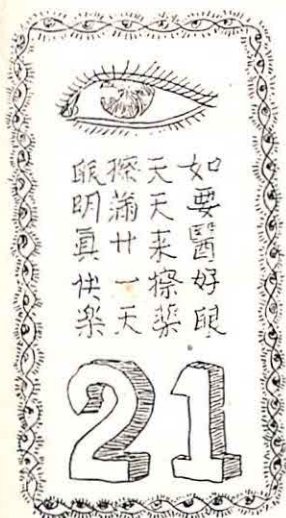 如要醫好眼
天天来擦薬
擦滿廿一天
眼明真快楽
21